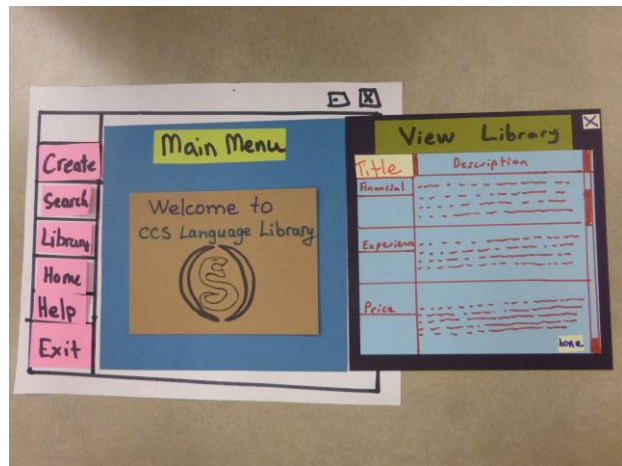 Main Menu
Create
Search
Library
Home
Help
Exit
Welcome to
CCS Language Library
S
X
View Library
X
Title
Description
Financial
Experience
Price